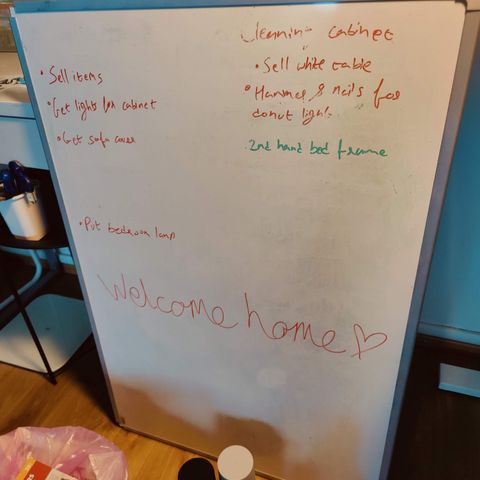 • Sell items
• Get lights for cabinet
• Get sofa cover
• Put bedroom lamp
Cleaning cabinet
• Sell white table
• Hammer & nails for
donut lights
2nd hand bed frame
Welcome home ♡